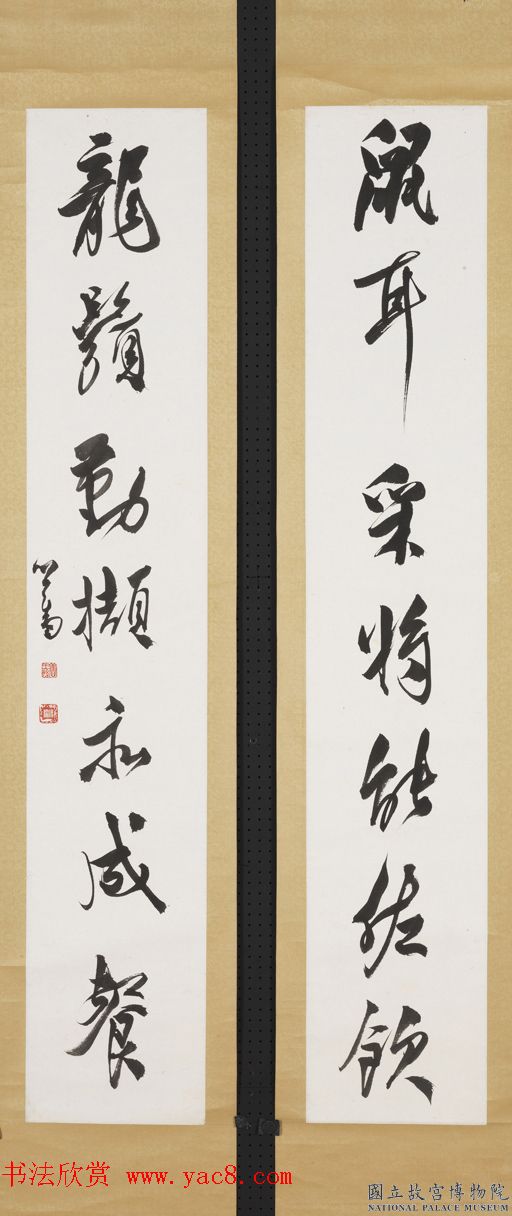 鼠耳采將能佐飲
龍鬚勤擷和成餐
心畬
书法欣赏 www.yac8.com
國立故宮博物院
NATIONAL PALACE MUSEUM